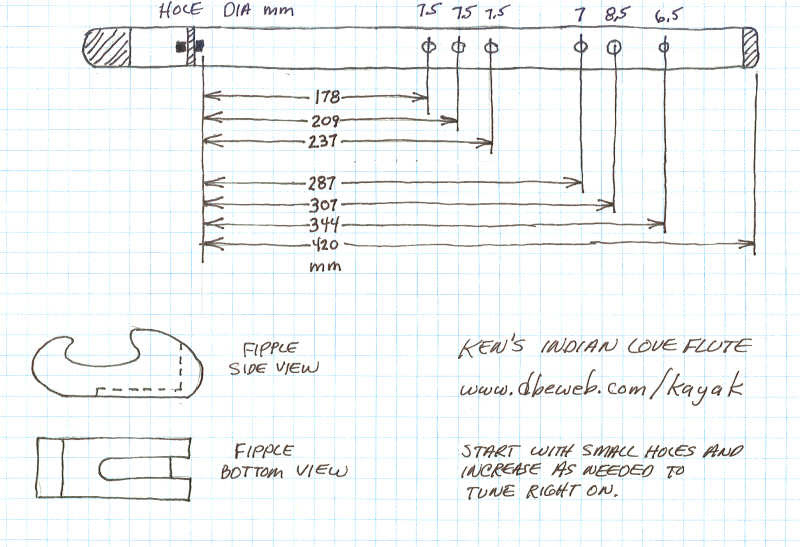 HOLE DIA mm 7.5 7.5 7.5 7 8.5 6.5
178
209
237
287
307
344
420
mm
FIPPLE
SIDE VIEW
KEN'S INDIAN LOVE FLUTE
www.dbeweb.com/kayak
FIPPLE
BOTTOM VIEW
START WITH SMALL HOLES AND
INCREASE AS NEEDED TO
TUNE RIGHT ON.